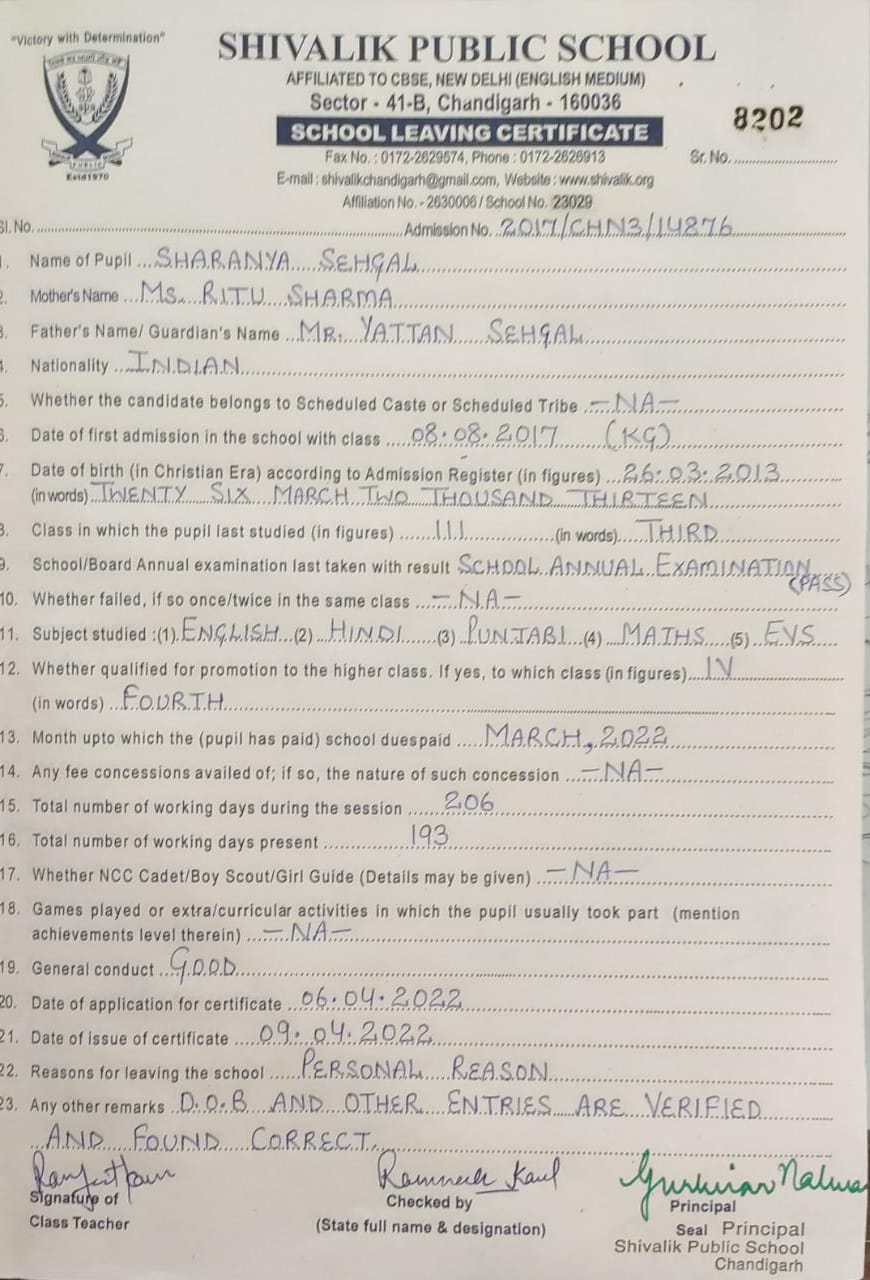 "Victory with Determination"
SHIVALIK PUBLIC SCHOOL
AFFILIATED TO CBSE, NEW DELHI (ENGLISH MEDIUM)
Sector - 41-B, Chandigarh - 160036
8202
SCHOOL LEAVING CERTIFICATE
PUBLIC
Estd1970
Fax No. : 0172-2629574, Phone : 0172-2626913 Sr. No.
E-mail : shivalikchandigarh@gmail.com, Website : www.shivalik.org
Affiliation No. - 2630006 / School No. 23029
Sl. No. Admission No. 2017/CHN3/14876
1. Name of Pupil SHARANYA SEHGAL
2. Mother's Name MS. RITU SHARMA
3. Father's Name/ Guardian's Name MR. YATTAN SEHGAL
4. Nationality INDIAN
5. Whether the candidate belongs to Scheduled Caste or Scheduled Tribe -NA-
6. Date of first admission in the school with class 08.08.2017 (KG)
7. Date of birth (in Christian Era) according to Admission Register (in figures) 26.03.2013
(in words) TWENTY SIX MARCH TWO THOUSAND THIRTEEN
8. Class in which the pupil last studied (in figures) III (in words) THIRD
9. School/Board Annual examination last taken with result SCHOOL ANNUAL EXAMINATION
(PASS)
10. Whether failed, if so once/twice in the same class -NA-
11. Subject studied :(1) ENGLISH (2) HINDI (3) PUNJABI (4) MATHS (5) EVS
12. Whether qualified for promotion to the higher class. If yes, to which class (in figures) IV
(in words) FOURTH
13. Month upto which the (pupil has paid) school duespaid MARCH, 2022
14. Any fee concessions availed of; if so, the nature of such concession -NA-
15. Total number of working days during the session 206
16. Total number of working days present 193
17. Whether NCC Cadet/Boy Scout/Girl Guide (Details may be given) -NA-
18. Games played or extra/curricular activities in which the pupil usually took part (mention
achievements level therein) -NA-
19. General conduct GOOD
20. Date of application for certificate 06.04.2022
21. Date of issue of certificate 09.04.2022
22. Reasons for leaving the school PERSONAL REASON
23. Any other remarks D.O.B AND OTHER ENTRIES ARE VERIFIED
AND FOUND CORRECT
Signature of Checked by Principal
Class Teacher (State full name & designation) Seal Principal
Shivalik Public School
Chandigarh